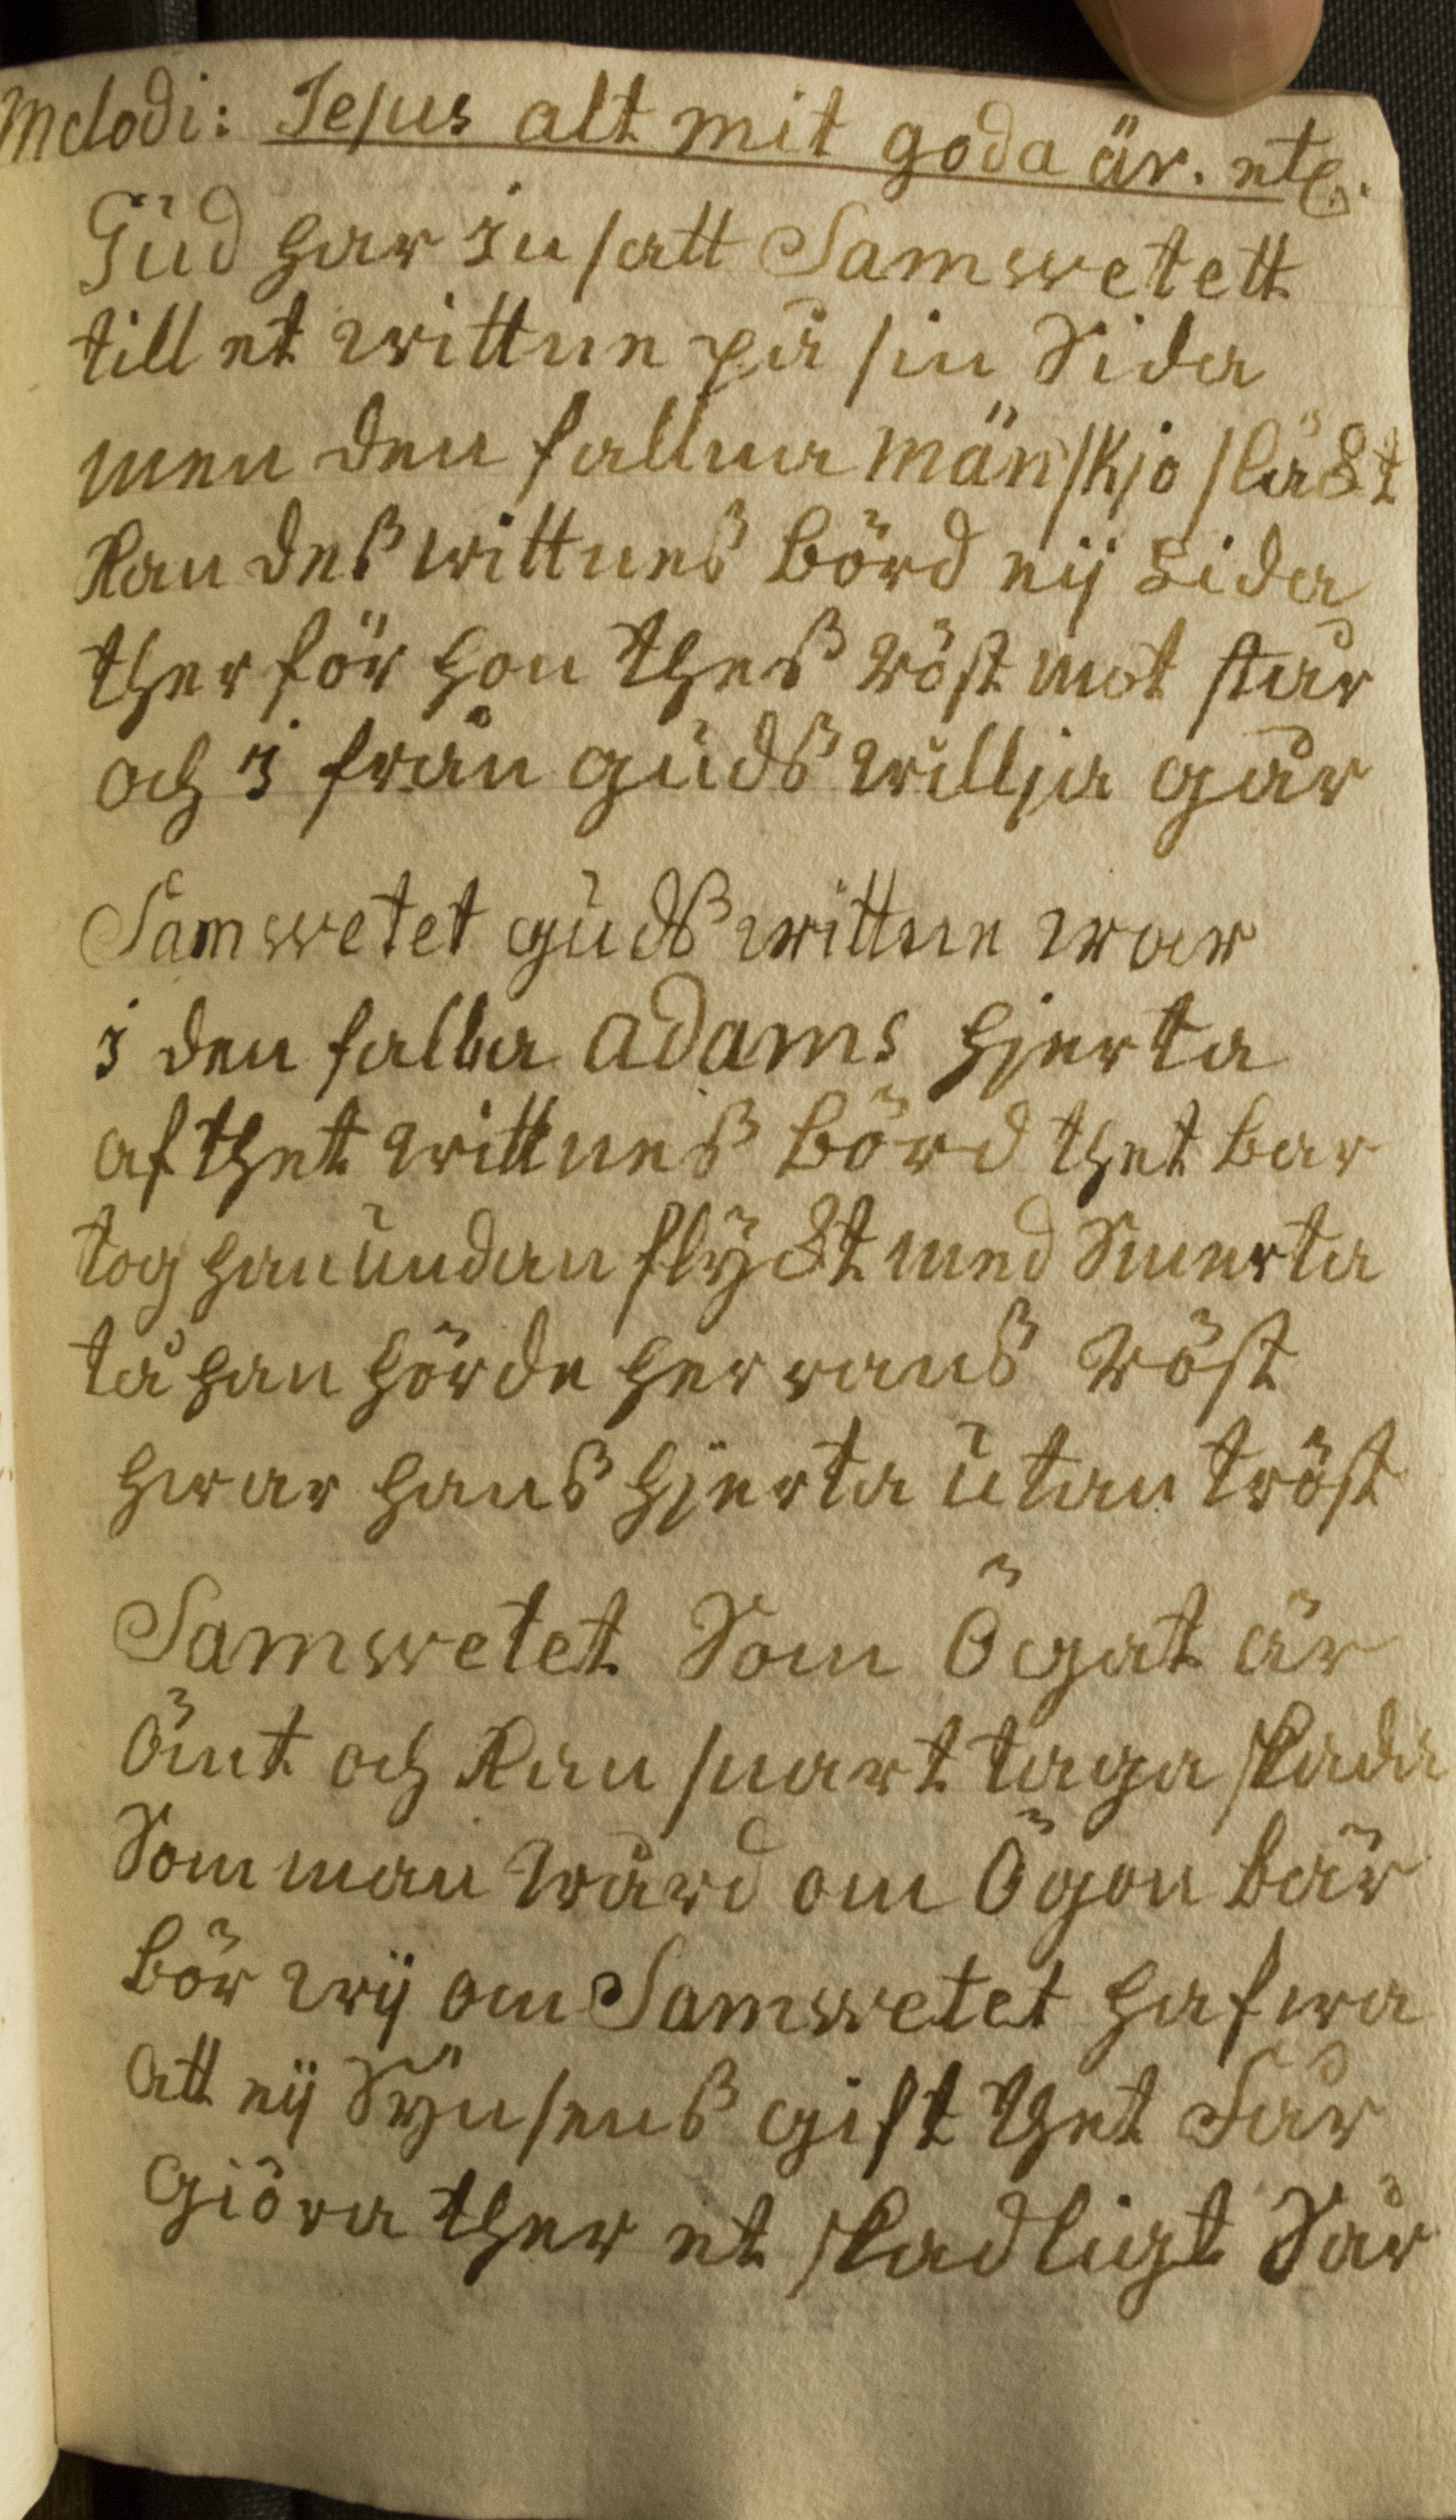 Melodi: Jesus alt mit goda är. etc.
Gud har in satt Samwetett
till et wittne på sin Sida
men den fallna mänskjo släkt
kan des wittnes börd eij Lida
ther för hon thes röst mot står
och i från guds willja går
Samwetet guds wittne war
i den fallna adams hjerta
af thet wittnes börd thet bar
tog han undan flyckt med Smerta
tå han hörde herrans röst
hwar hans hjerta utan tröst
Samwetet Som Ögat är
ömt och kan snart taga skada
Som man wård om Ögon bär
bör wij om Samwetet hafwa
att eij Synsens gift thet Får
giöra ther et skadligt Sår